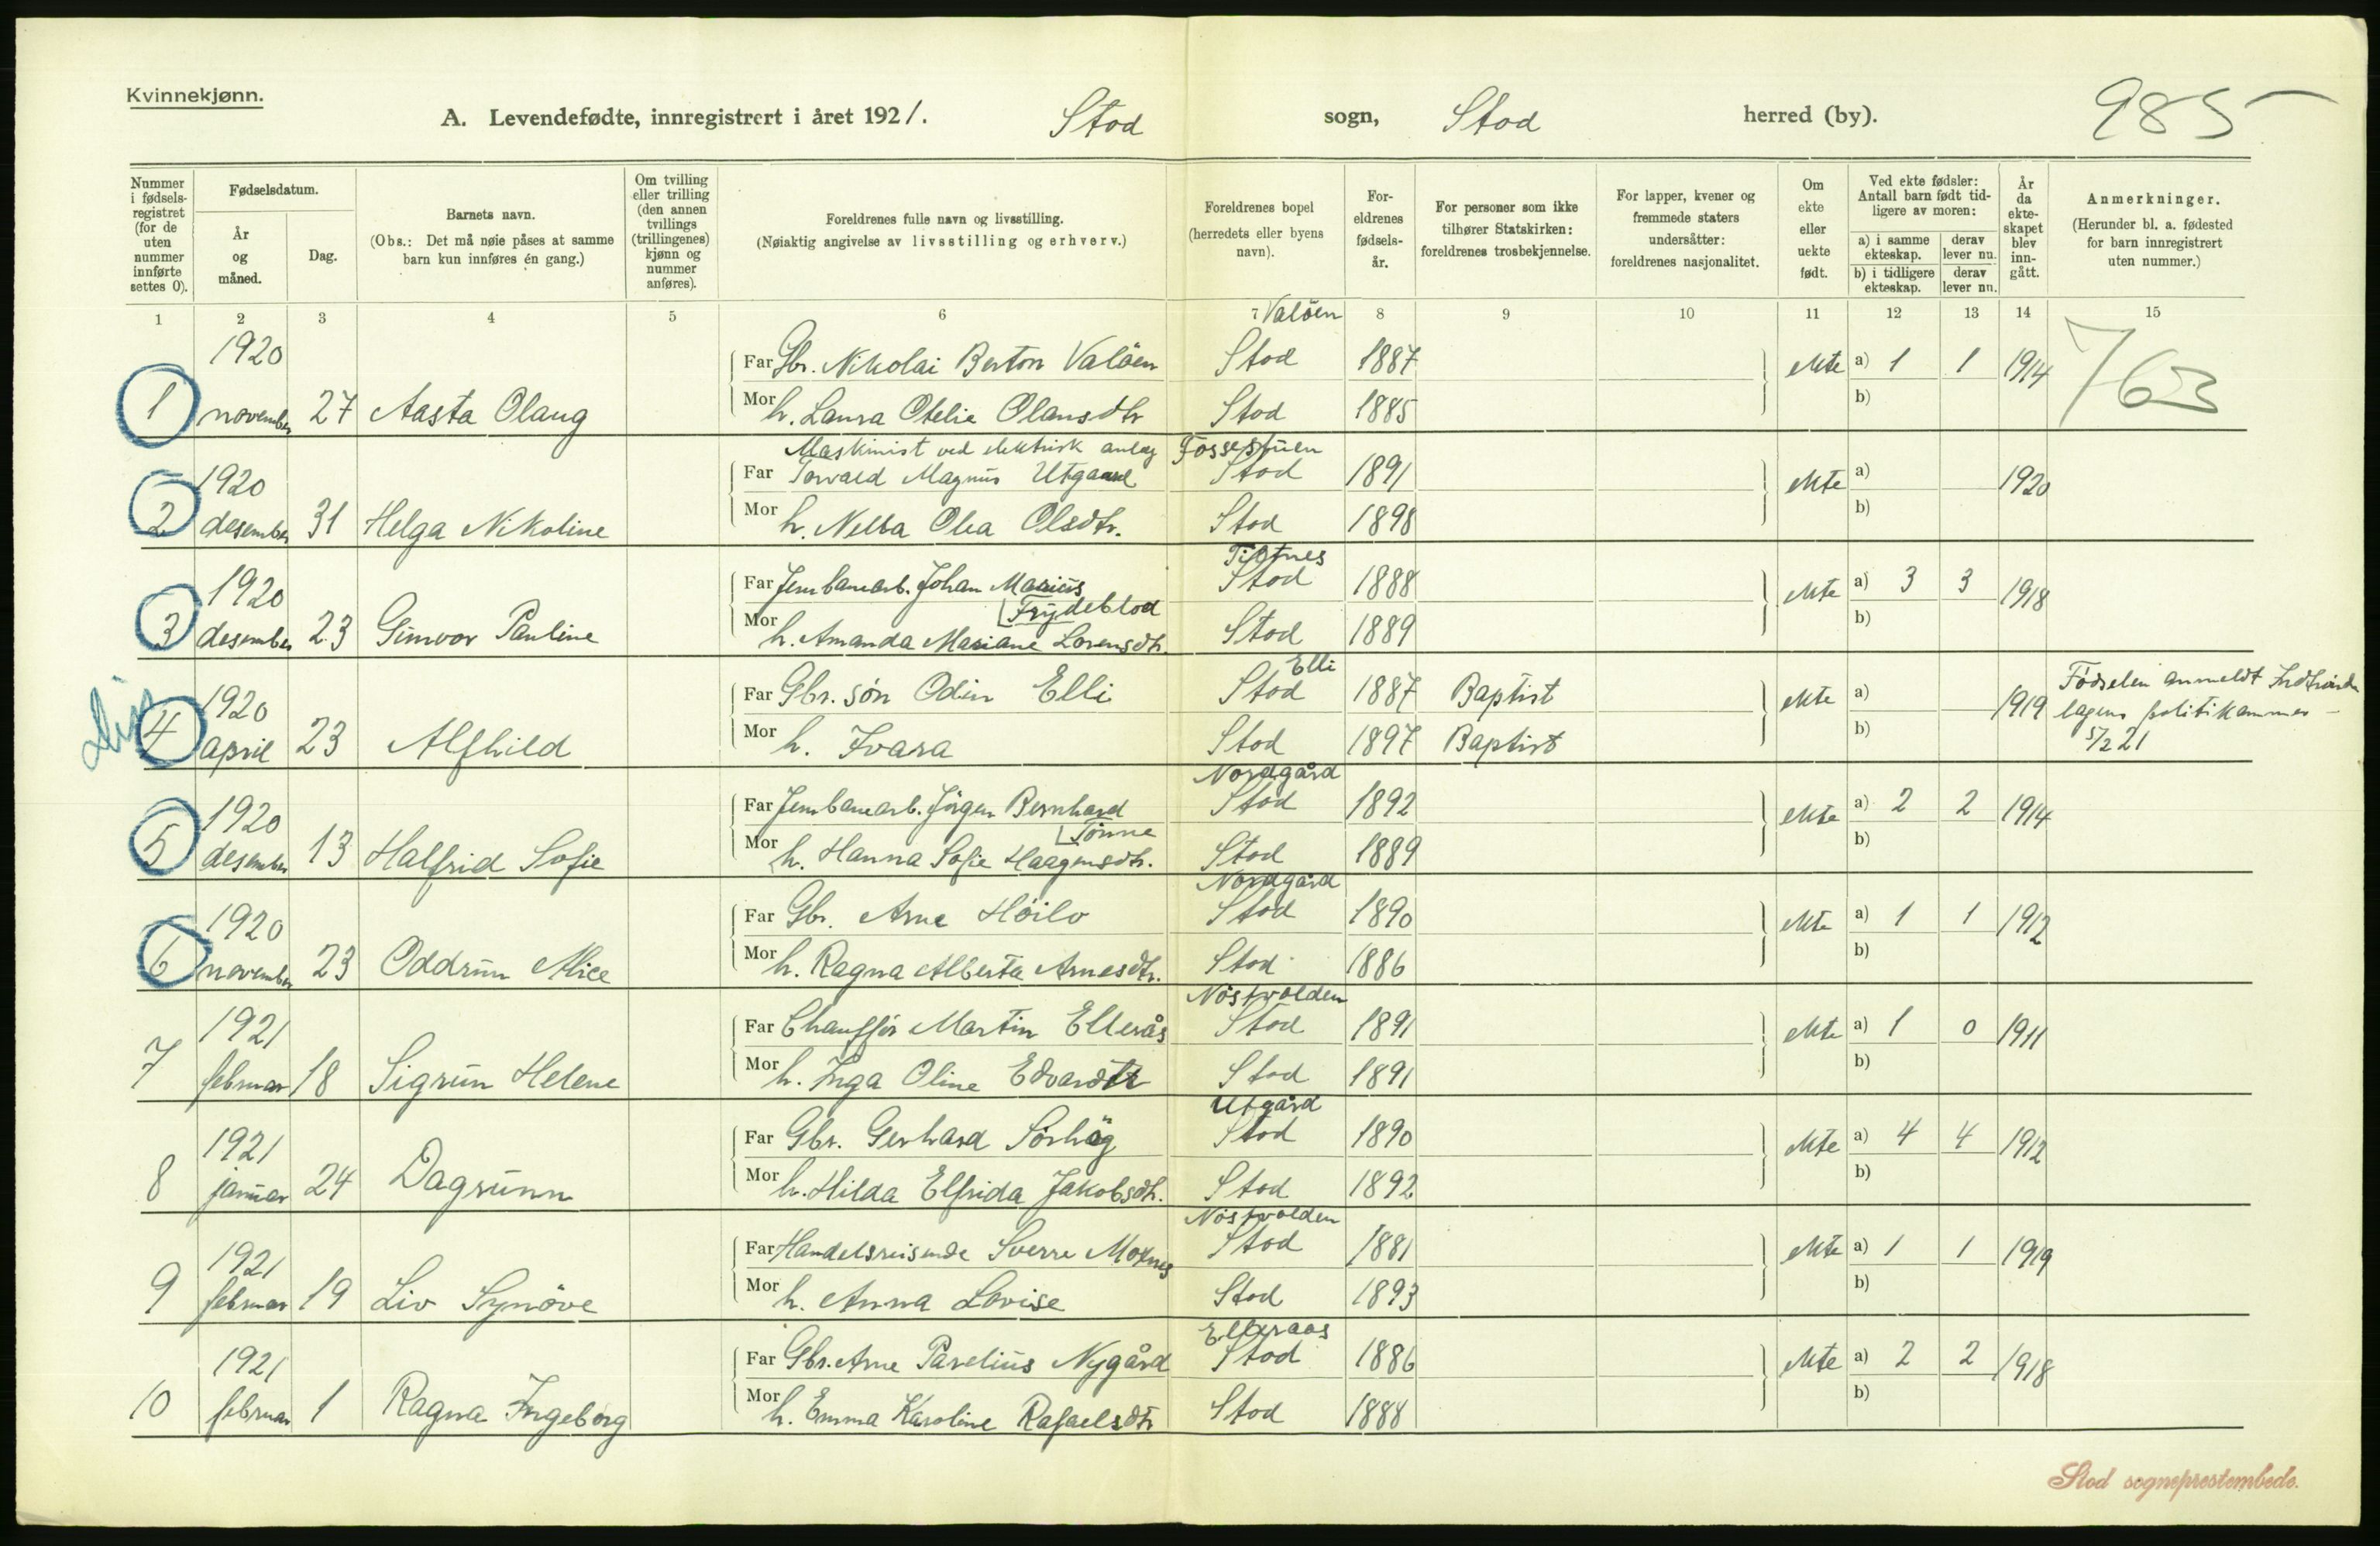 Kvinnekjønn.
A. Levendefødte, innregistrert i året 1921. Stod sogn, Stod herred (by). 985
Nummer i fødselsregistret (for de uten nummer innførte settes 0).
Fødselsdatum.
År og måned.
Dag.
Barnets navn.
(Obs.: Det må nøie påses at samme barn kun innføres én gang.)
Om tvilling eller trilling (den annen tvillings (trillingenes) kjønn og nummer anføres).
Foreldrenes fulle navn og livsstilling.
(Nøiaktig angivelse av livsstilling og erhverv.)
Foreldrenes bopel (herredets eller byens navn).
Foreldrenes fødselsår.
For personer som ikke tilhører Statskirken: foreldrenes trosbekjennelse.
For lapper, kvener og fremmede staters undersåtter: foreldrenes nasjonalitet.
Om ekte eller uekte født.
Ved ekte fødsler: Antall barn født tidligere av moren:
a) i samme ekteskap. derav lever nu.
b) i tidligere ekteskap. derav lever nu.
År da ekteskapet blev inngått.
Anmerkninger.
(Herunder bl. a. fødested for barn innregistrert uten nummer.)
1 2 3 4 5 6 7 8 9 10 11 12 13 14 15
Valöen
1920 Far Gbr. Nikolai Berton Valöen Stod 1887 ekte a) 1 1 1914 763
1 november 27 Aasta Olaug Mor h. Laura Otelie Olausdtr Stod 1885 b)
Maskinist ved elektrisk anlæg Fossestuen
1920 Far Torvald Magnus Utgaard Stod 1891 ekte a) 1920
2 desember 31 Helga Nikoline Mor h. Olea Olsdtr. Stod 1898 b)
1920 Far Jernbanearb. Johan Marius Stod 1888 ekte a) 3 3 1918
Frydeblod
3 desember 23 Gunvor Pauline Mor h. Amanda Mariane Lorensdtr. Stod 1889 b)
Elli
1920 Far Gbr. søn Odin Elli Stod 1887 Baptist ekte a) 1919 Fødselen anmeldt
4 april 23 Alfhild Mor h. Ivara Stod 1897 Baptist b) lagens politikammer
5/2 21
Nordgård
1920 Far Jernbanearb. Jörgen Bernhard Stod 1892 ekte a) 2 2 1914
Tönne
5 desember 13 Halfrid Sofie Mor h. Hanna Sofie Haagensdtr. Stod 1889 b)
Nordgård
1920 Far Gbr. Arne Höilo Stod 1890 ekte a) 1 1 1912
6 november 23 Oddrun Alice Mor h. Ragna Alberta Arnesdtr. Stod 1886 b)
Nöstvolden
1921 Far Chaufför Martin Ellerås Stod 1891 ekte a) 1 0 1911
7 februar 18 Sigrun Helene Mor h. Inga Oline Edvardtr Stod 1891 b)
Utgård
1921 Far Gbr. Gerhard Sörhög Stod 1890 ekte a) 4 4 1912
8 januar 24 Dagrunn Mor h. Hilda Elfrida Jakobsdtr. Stod 1892 b)
Nöstvolden
1921 Far Handelsreisende Sverre Moxnes Stod 1881 ekte a) 1 1 1919
9 februar 19 Liv Synöve Mor h. Anna Lovise Stod 1893 b)
Elleraas
1921 Far Gbr. Arne Parelius Nygård Stod 1886 ekte a) 2 2 1918
10 februar 1 Ragna Ingeborg Mor h. Emma Karoline Rafaelsdtr Stod 1888 b)
Stod sogneprestembede.